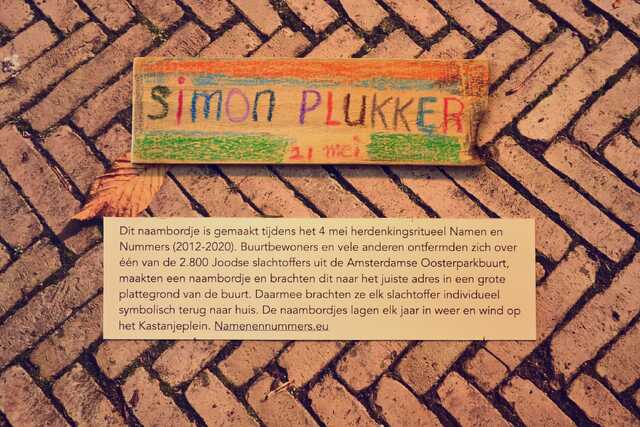 SiMON PLUKKER
21 mei
Dit naambordje is gemaakt tijdens het 4 mei herdenkingsritueel Namen en
Nummers (2012-2020). Buurtbewoners en vele anderen ontfermden zich over
één van de 2.800 Joodse slachtoffers uit de Amsterdamse Oosterparkbuurt,
maakten een naambordje en brachten dit naar het juiste adres in een grote
plattegrond van de buurt. Daarmee brachten ze elk slachtoffer individueel
symbolisch terug naar huis. De naambordjes lagen elk jaar in weer en wind op
het Kastanjeplein. Namenennummers.eu